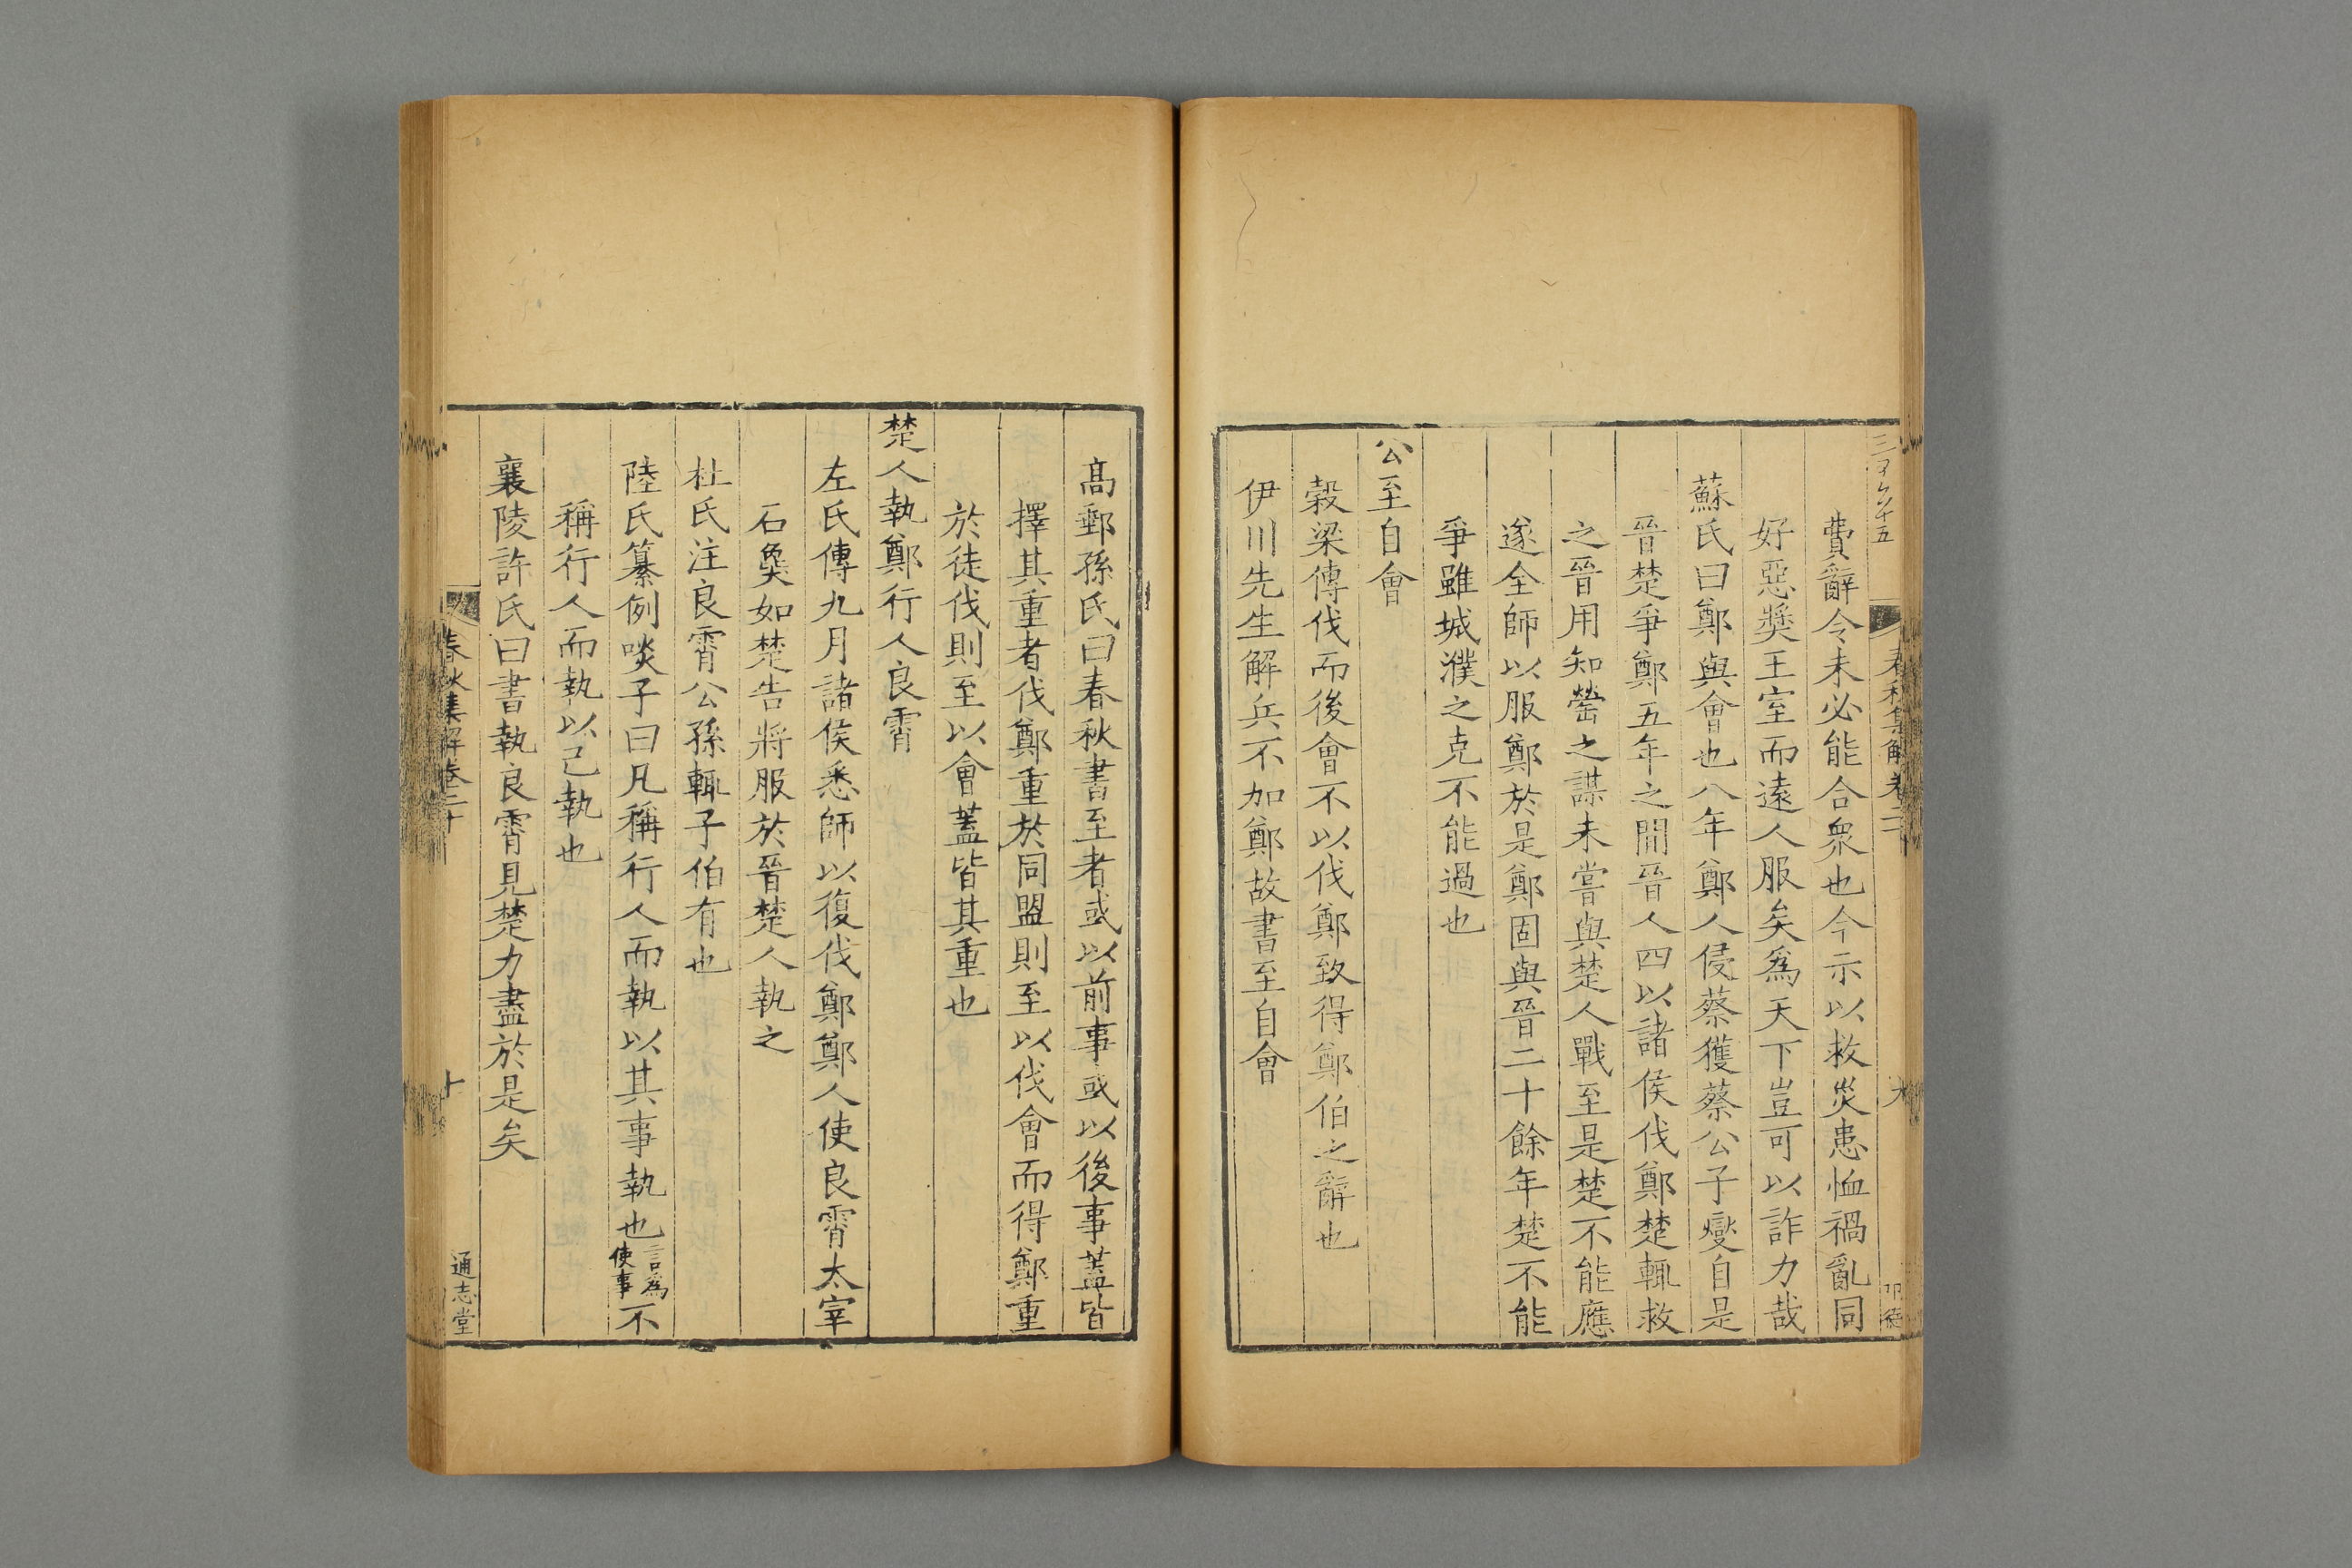 費辭令未必能合衆也今示以救災患恤禍亂同
好惡奬王室而遠人服矣爲天下豈可以詐力哉
蘇氏曰鄭與會也八年鄭人侵蔡獲蔡公子燮自是
晉楚爭鄭五年之間晉人四以諸侯伐鄭楚輒救
之晉用知罃之謀未嘗與楚人戰至是楚不能應
遂全師以服鄭於是鄭固與晉二十餘年楚不能
爭雖城濮之克不能過也
公至自會
榖梁傳伐而後會不以伐鄭致得鄭伯之辭也
伊川先生解兵不加鄭故書至自會
髙郵孫氏曰春秋書至者或以前事或以後事蓋皆
擇其重者伐鄭重於同盟則至以伐會而得鄭重
於徒伐則至以會蓋皆其重也
楚人執鄭行人良霄
左氏傳九月諸侯悉師以復伐鄭鄭人使良霄太宰
石㚟如楚告將服於晉楚人執之
杜氏注良霄公孫輒子伯有也
陸氏纂例啖子曰凡稱行人而執以其事執也言爲使事不
稱行人而執以己執也
襄陵許氏曰書執良霄見楚力盡於是矣
春秋集解卷二十
十
通志堂